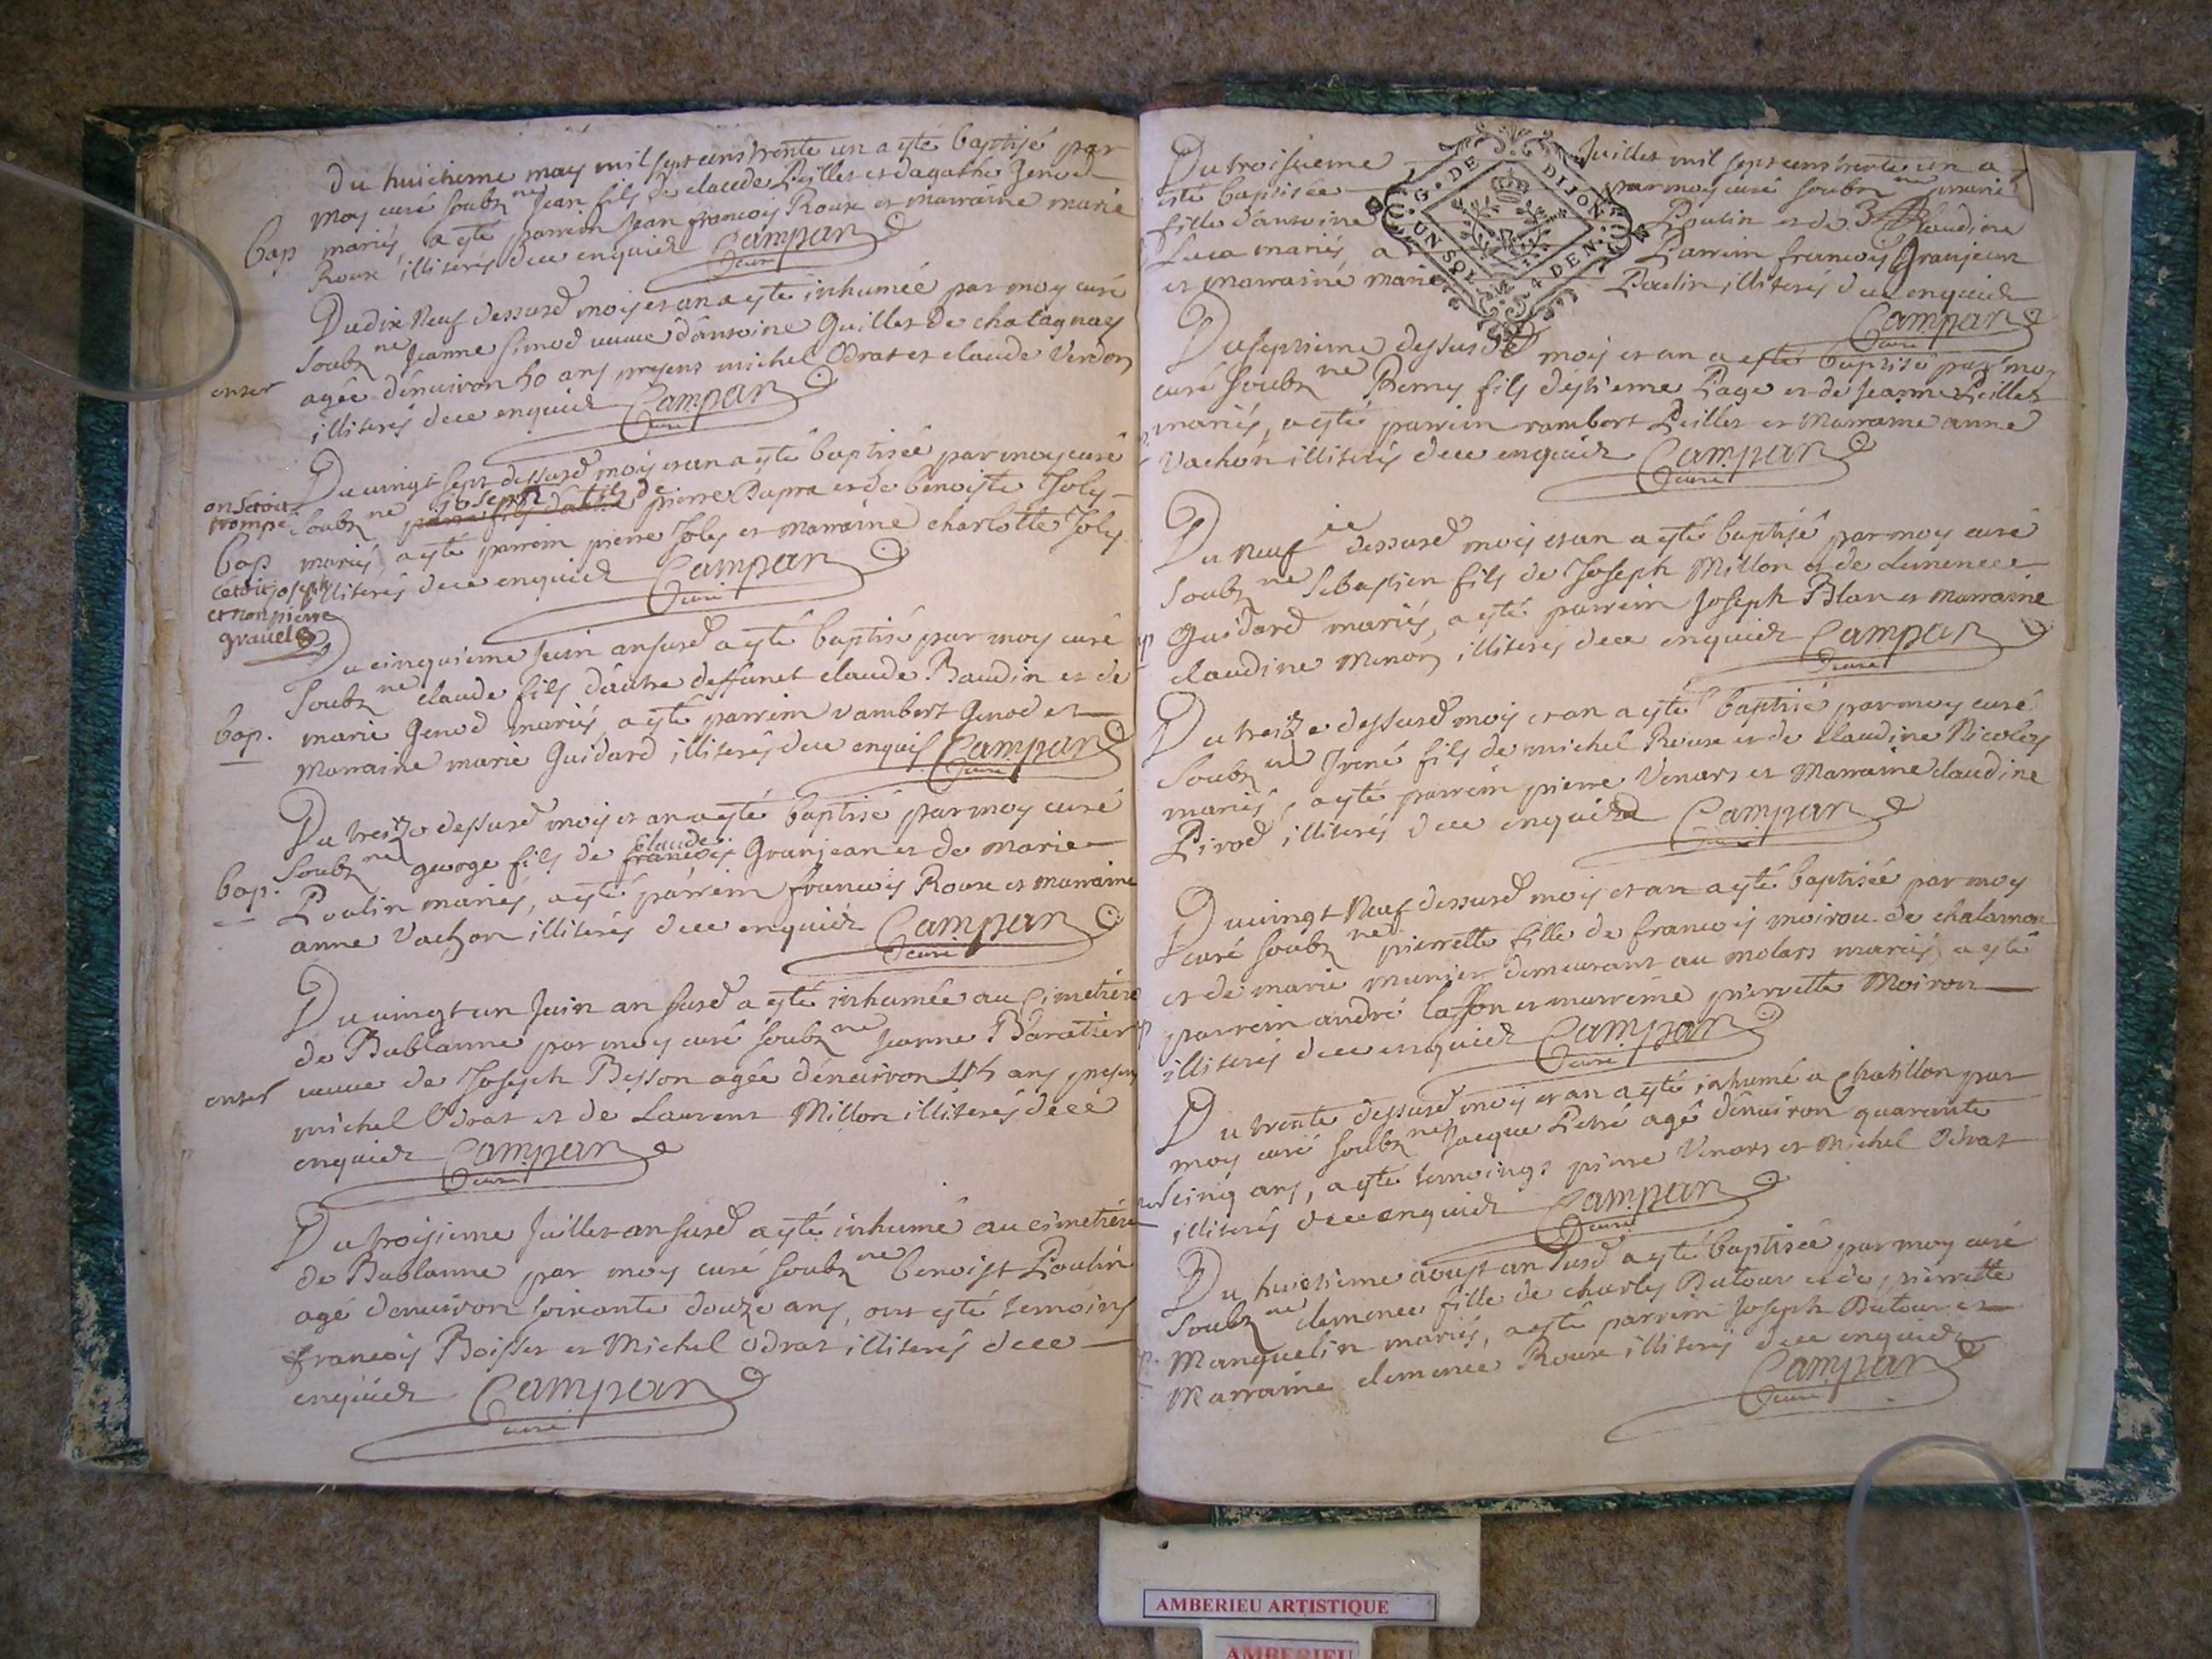 Du huicheme may mil sept cens trente un a esté baptisé par
moy curé soubz ne Jean fils de claude Peillet et dagathe Genod
bap mariés, a esté parrein Jean francois Roux et marraine marie
Roux illiterés dece enquich Campan
curé
Du dix Neuf dessusd mois et an a esté inhumée par moy curé
soubz ne Jeanne Simod veuve d'antoine Guillet de chatagnay
enter agée d'environ 50 ans presens michel Odrat et claude Verdon
illiterés dece enquich Campan
curé
Du vingt sept dessusd mois et an a esté baptisée par moy curé
on setoit
trompé soubz ne joseph fils de pierre Dupra et de benoiste Joly
bap mariés, a esté parrein pierre Joly et marraine charlotte Joly
cetoit joseph illiterés dece enquich Campan
et non pierre curé
gravel
Du cinquieme Juin an susd a esté baptisé par moy curé
soubz ne claude fils d'autre deffunct claude Baudin et de
bap. marie Genod mariés, a esté parrein rambert Genod et
marraine marie Guidard illiterés dece enquis Campan
curé
Du treize dessusd mois et an a esté baptisé par moy curé
claude
soubz ne george fils de francois Granjean et de marie
bap. Poulin mariés, a esté parrein francois Roux et marraine
anne Vachon illiterés dece enquich Campan
curé
Du vingt un Juin an susd a esté inhumée au Cimetiere
de Bublanne par moy curé soubz ne Jeanne Baratier
enter veuve de Joseph Besson agée d'environ ans presens
michel Odrat et de Laurent Millon illiterés dece
enquich Campan
curé
Du troisieme Juillet an susd a esté inhumé au cimetiere
de Bublanne par moy curé soubz ne benoist Poulin
agé denviron soixante douze ans, ont esté temoins
francois Boisset et Michel Odrat illiterés dece
enquich Campan
curé
Du troisieme Juillet mil sept cens trente un a
esté baptisée par moy curé soubz ne marie
fille d'antoine Poulin et de claudine
Luca mariés, a Parrein francois Granjean
et marraine marie Poulin illiterés dece enquich
G. DE DIJON
UN SOL 4 DEN.
Campan
curé
Du septieme dessusd mois et an a esté baptisé par moy
curé soubz ne Remy fils d'estieme Page et de Jeanne Peillet
mariés, a esté parrein rambert Peillet et Marraine anne
Vachon illiterés dece enquich Campan
curé
Du neuf ie dessusd mois et an a esté baptisé par moy curé
soubz ne Sebastien fils de Joseph Millon et de clemence
Guidard mariés, a esté parrein Joseph Blan et marraine
claudine Menon illiterés dece enquich Campan
curé
Du treize dessusd mois et an a esté baptisé par moy curé
soubz ne Irené fils de michel Roux et de claudine Nicolas
mariés, a esté parrein pierre Venars et Marraine claudine
Pirod illiterés dece enquich Campan
curé
Du vingt Neuf dessusd mois et an a esté baptisée par moy
curé soubz ne pierrette fille de francois moiron de chalamon
et de marie munier demeurant au molars mariés, a esté
parrein andré lasson et marreine pierrette Moiron
illiterés dece enquich Campan
curé
Du trente dessusd mois et an a esté inhumé a Chatillon par
moy curé soubz ne Jacque Pietré agé d'environ quarante
cinq ans, a esté temoings pierre Venars et Michel Odrat
illiterés dece enquich Campan
curé
Du huitieme aoust an susd a esté baptisée par moy curé
soubz ne clemence fille de charles Dutour et de pierrette
Manquelin mariés, a esté parrein Joseph Dutour et
Marraine clemence Roux illiterés dece enquich
Campan
curé
AMBERIEU ARTISTIQUE
AMBERIEU